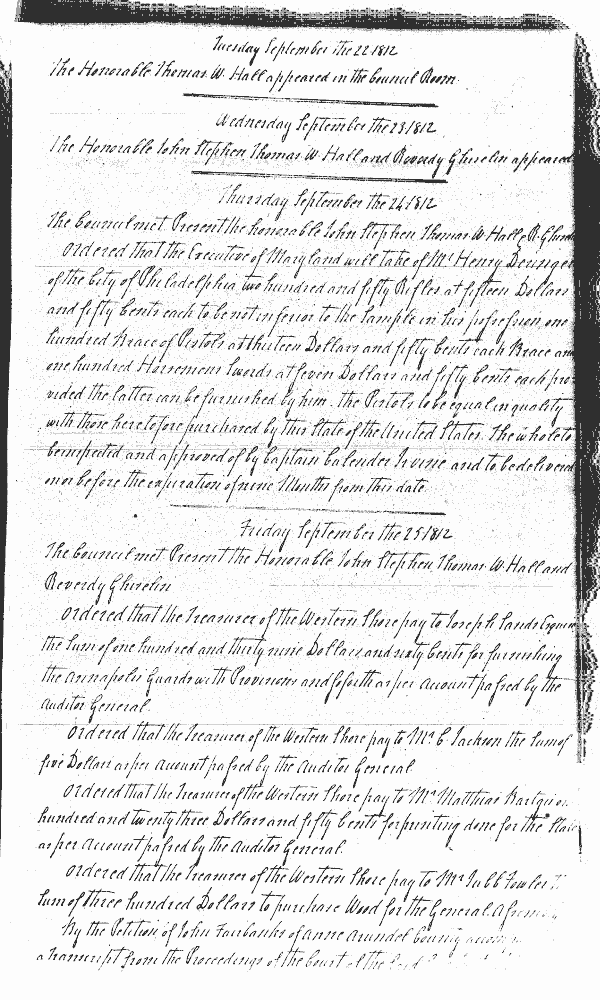 Tuesday September the 22 1812
The Honorable Thomas W. Hall appeared in the Council Room
Wednesday September the 23 1812
The Honorable John Stephen Thomas W Hall and Reverdy Ghiselin appeared
Thursday September the 24 1812
The Council met Present the honorable John Stephen Thomas W Hall & R Ghise
Ordered that the Executive of Maryland will take of Mr Henry
of the City of Philadelphia two hundred and fifty Rifles at fifteen Dollars
and fifty Cents each to be not inferior to the Sample in his possession one
hundred Brace of Pistols at thirteen Dollars and fifty Cents each Brace and
one hundred Horsemens Swords at seven Dollars and fifty Cents each pro
vided the latter can be furnished by him. The Pistols to be equal in quality
with those heretofore purchased by this State of the United States. The whole to
be inspected and approved of by Captain Calender Irvine and to be delivered
on or before the expiration of nine Months from this date
Friday September the 25 1812
The Council met Present the Honorable John Stephen Thomas W. Hall and
Reverdy Ghiselin
Ordered that the Treasurer of the Western Shore pay to Joseph Sands Esquire
the Sum of one hundred and thirty nine Dollars and sixty Cents for furnishing
the Annapolis Guards with Provisions and so forth as per account passed by the
Auditor General.
Ordered that the Treasurer of the Western Shore pay to Mr. C Jackson the Sum of
five Dollars as per account passed by the Auditor General
Ordered that the Treasurer of the Western Shore pay to Mr Matthias Bartgis on
hundred and twenty three Dollars and fifty Cents for printing done for the State
as per account passed by the Auditor General.
Ordered that the Treasurer of the Western Shore pay to Mr Jubb Fowler
Sum of three hundred Dollars to purchase Wood for the General
By the Petition of John Fairbanks of Anne Arundel County
a transcript from the Proceedings of the Court of the